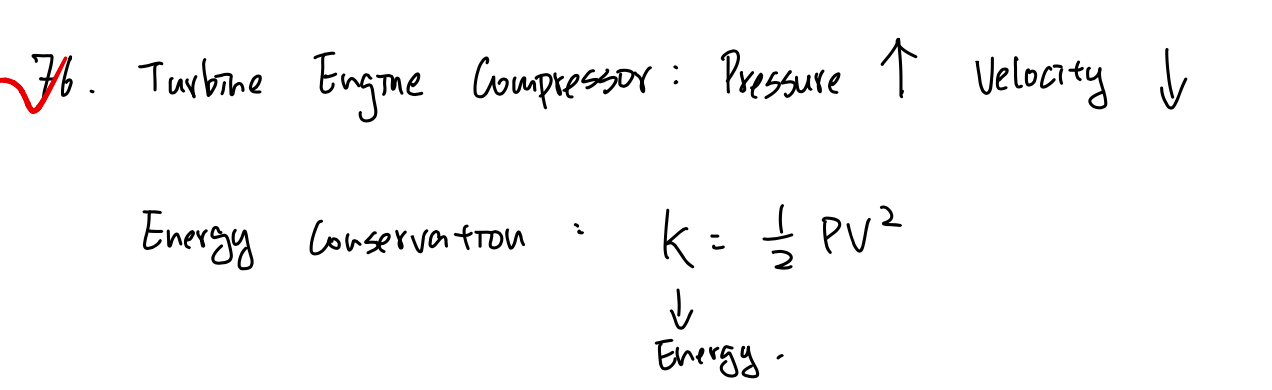 76. Turbine Engine Compressor: Pressure ↑ Velocity ↓
Energy Conservation : K = 1/2 PV²
↓
Energy.